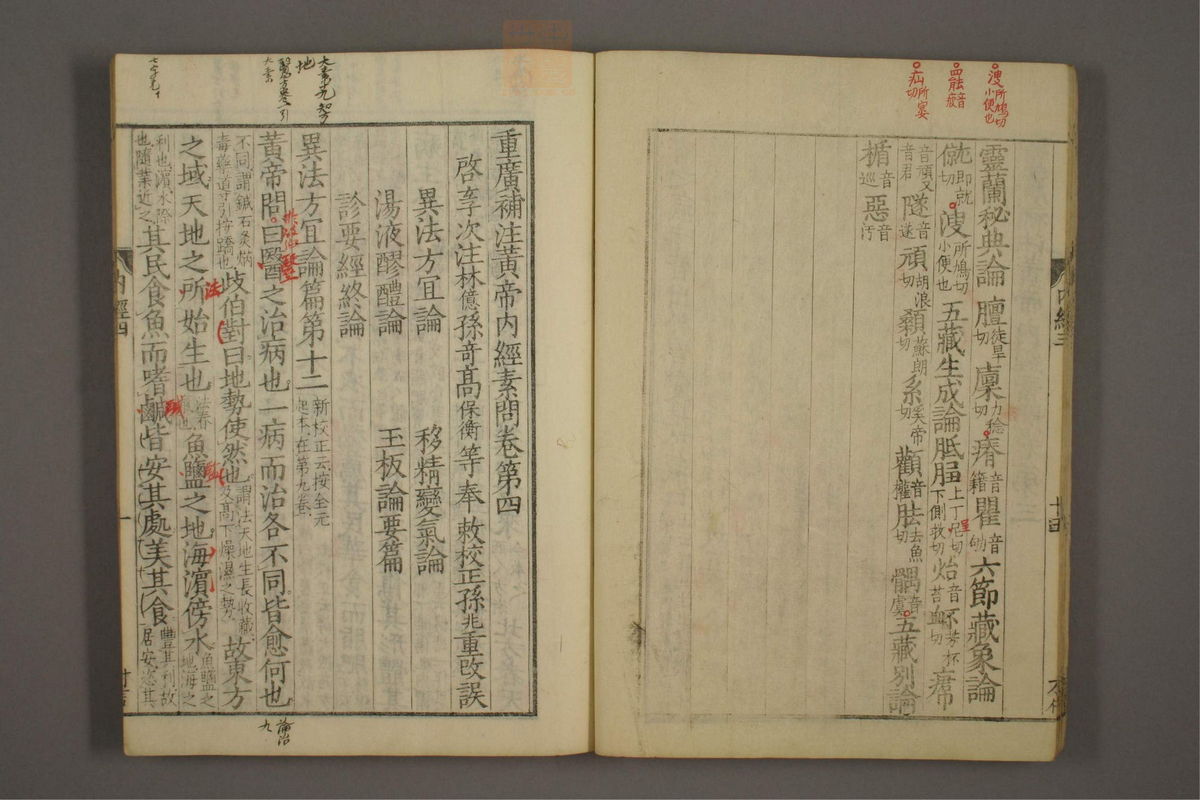 靈蘭秘典論 膻徒旱切 廩力稔切 瘠音籍 瞿音劬 六節藏象論
僦即就切 溲所鳩切小便也 五藏生成論 胝上丁尼切 下側救切
遂音遂 頏胡浪切 顙蘇朗切 系奚帝切 顴音權 胠去魚切 髃音虞 五藏別論
楯音巡 惡音汚
溲所鳩切小便也
重廣補注黃帝內經素問卷第四
啓玄子次注林億孫奇高保衡等奉敕校正孫兆重改誤
異法方宜論 移精變氣論
湯液醪醴論 玉板論要篇
診要經終論
異法方宜論篇第十二 新校正云按全元起本在第九卷
黃帝問曰醫之治病也一病而治各不同皆愈何也
不同謂鍼石灸焫毒藥導引按蹻也 歧伯對曰地勢使然也 謂法天地生長收藏及高下燥濕之勢 故東方
之域天地之所始生也 法春 魚鹽之地海濱傍水 魚鹽之地海之
利也濱水際也隨業近之 其民食魚而嗜鹹皆安其處美其食 豐其利故居安恣其
內經四
一
論治
九